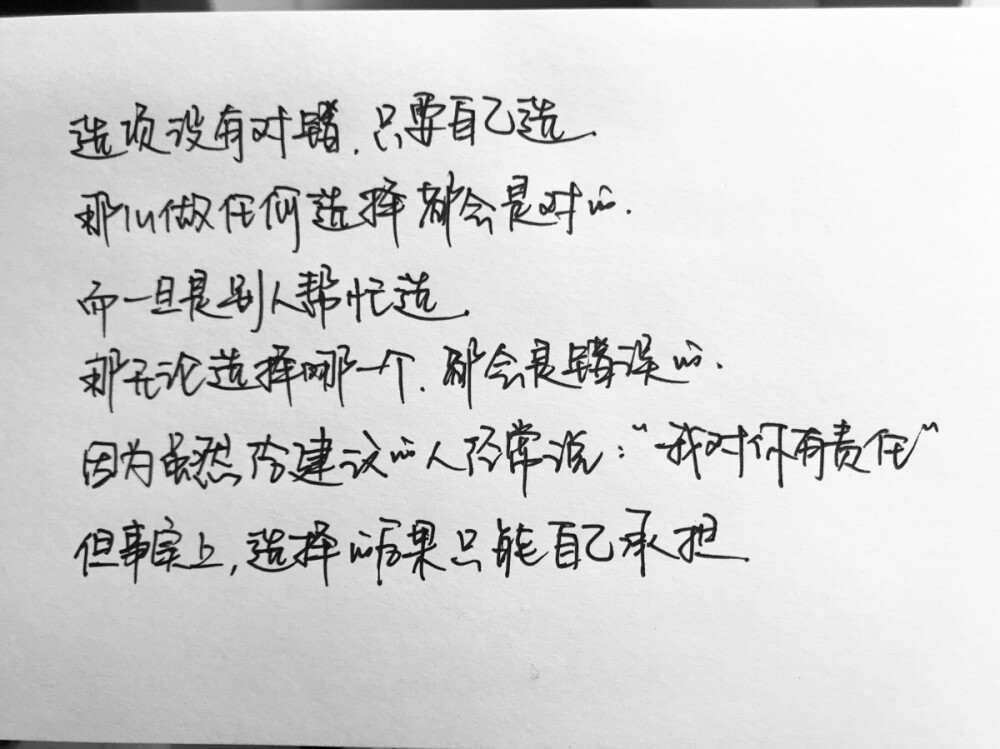 选项没有对错.只要自己选.
那么做任何选择都会是对的.
而一旦是别人帮忙选.
那无论选择哪一个.都会是错误的.
因为虽然给建议的人经常说:“我对你有责任”
但事实上,选择的后果只能自己承担.